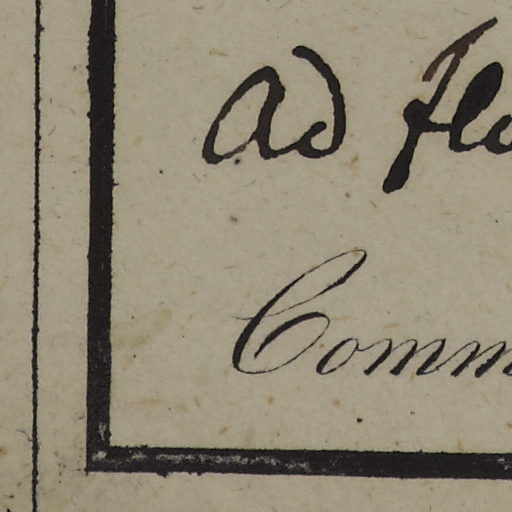 ad flo
Comm